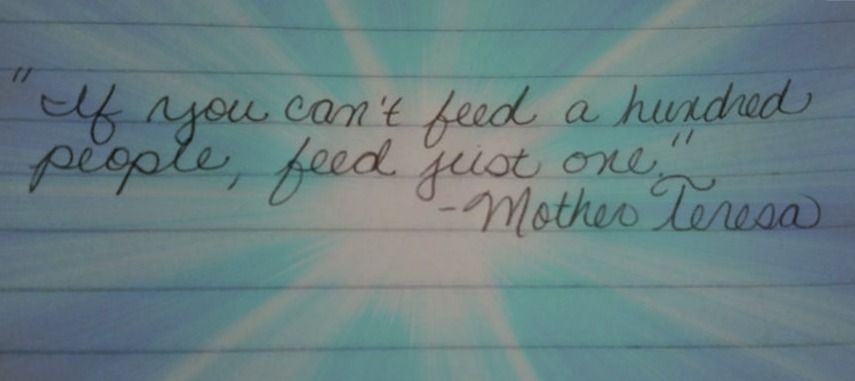 "If you can't feed a hundred
people, feed just one."
-Mother Teresa